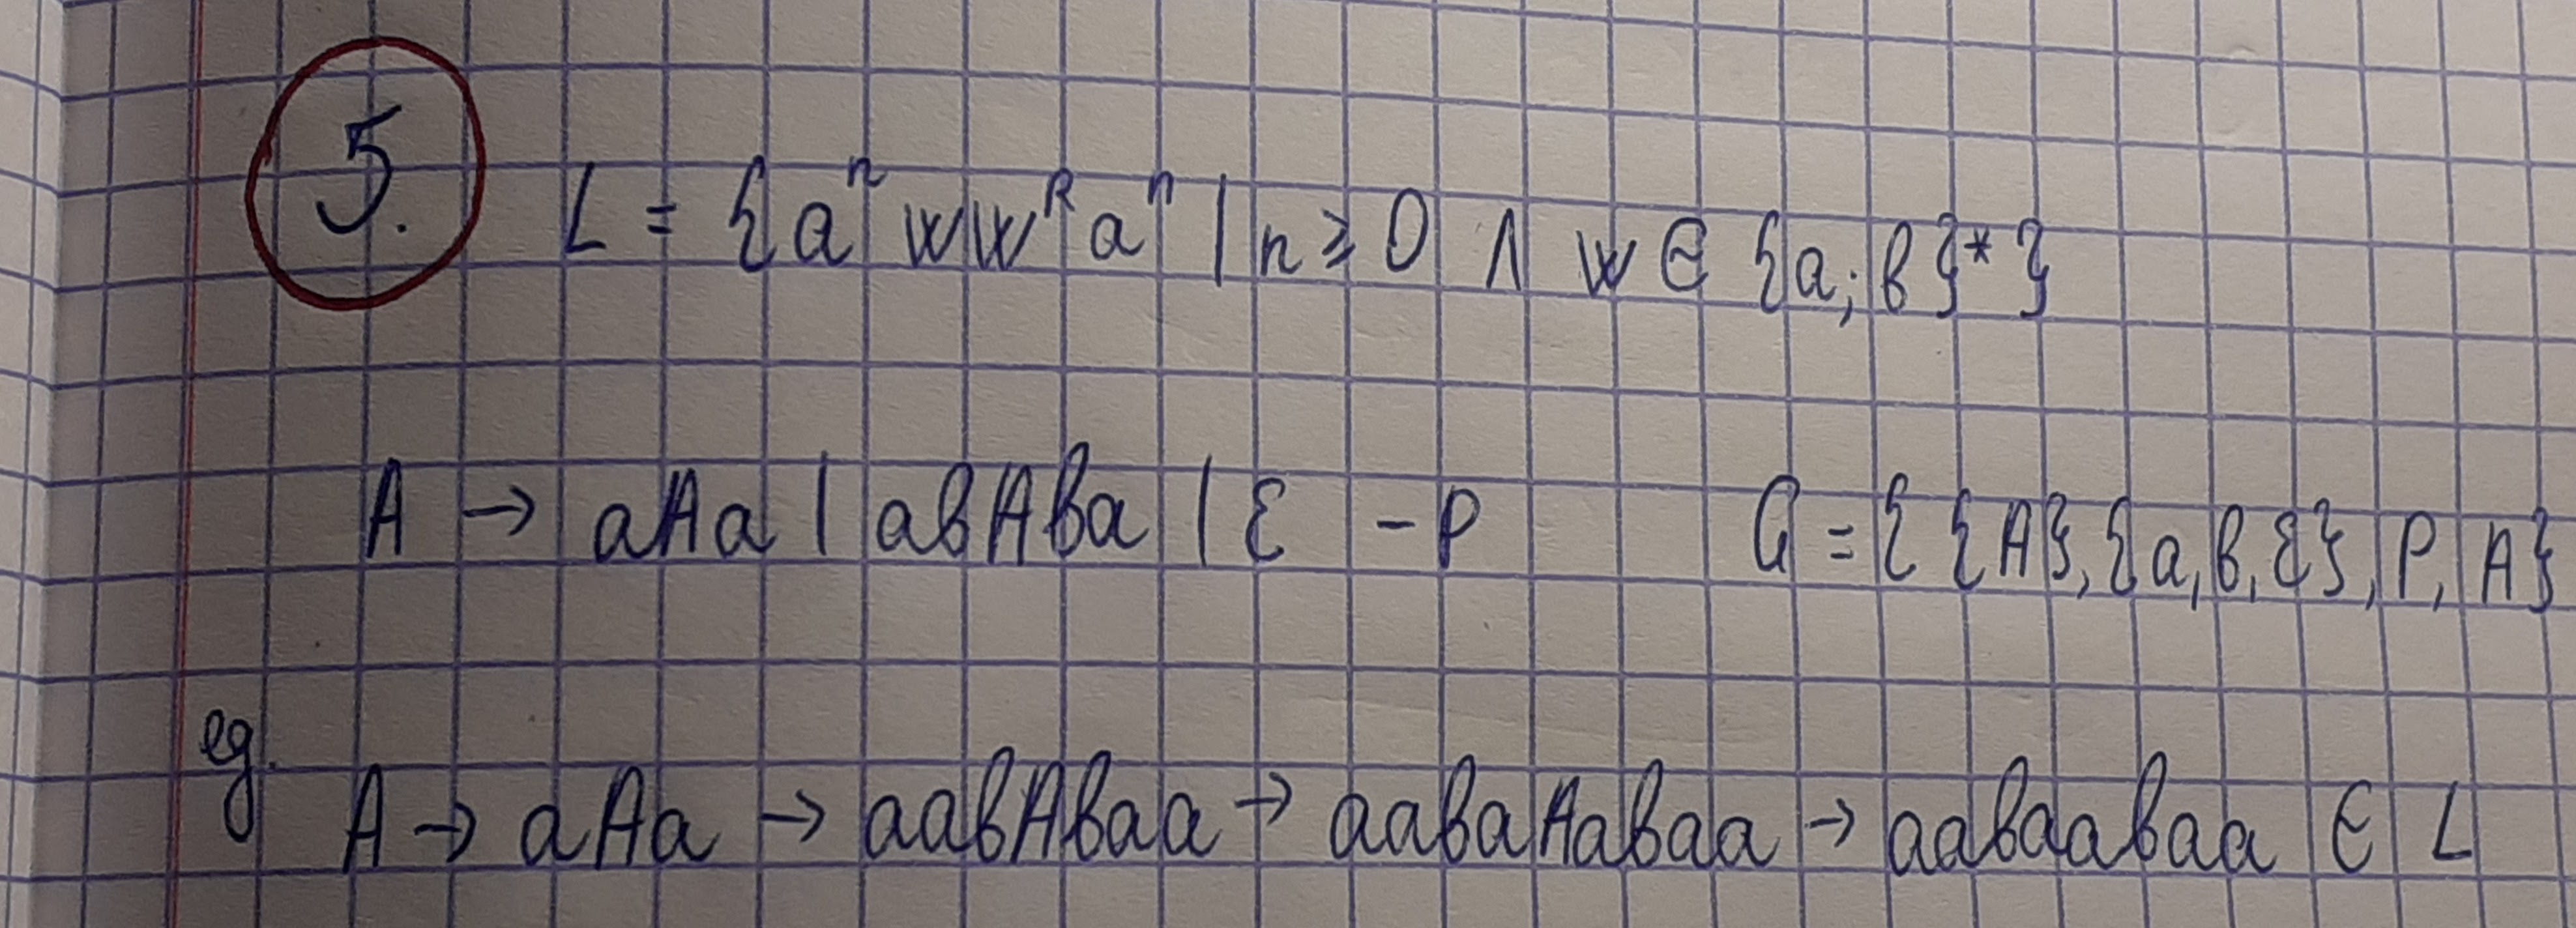 5. L = {aⁿ w wᴿ aⁿ | n ≥ 0 ∧ w ∈ {a; b}* }
A → aAa | abAba | ε - P G = { {A}, {a, b, ε}, P, A}
eg.
A → aAa → aabAbaa → aabaAabaa → aabaabaa ∈ L